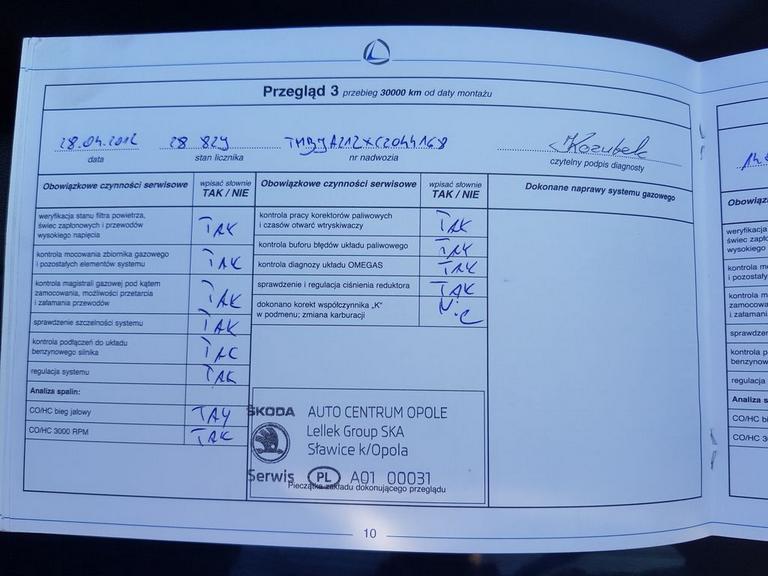 Przegląd 3 przebieg 30000 km od daty montażu
28.04.2012 28 829 TMBJA212XC2044168 Kozubek
data stan licznika nr nadwozia czytelny podpis diagnosty
Obowiązkowe czynności serwisowe
wpisać słownie
TAK / NIE
weryfikacja stanu filtra powietrza,
świec zapłonowych i przewodów
wysokiego napięcia
TAK
kontrola mocowania zbiornika gazowego
i pozostałych elementów systemu
TAK
kontrola magistrali gazowej pod kątem
zamocowania, możliwości przetarcia
i załamania przewodów
TAK
sprawdzenie szczelności systemu
TAK
kontrola podłączeń do układu
benzynowego silnika
TAK
regulacja systemu
TAK
Analiza spalin:
CO/HC bieg jałowy
TAK
CO/HC 3000 RPM
TAK
Obowiązkowe czynności serwisowe
wpisać słownie
TAK / NIE
kontrola pracy korektorów paliwowych
i czasów otwarć wtryskiwaczy
TAK
kontrola buforu błędów układu paliwowego
TAK
kontrola diagnozy układu OMEGAS
TAK
sprawdzenie i regulacja ciśnienia reduktora
TAK
dokonano korekt współczynnika „K”
w podmenu; zmiana karburacji
Dokonane naprawy systemu gazowego
ŠKODA AUTO CENTRUM OPOLE
Lellek Group SKA
Sławice k/Opola
Serwis PL A01 00031
Pieczątka zakładu dokonującego przeglądu
10
Obowiąz
weryfikacja
świec zapło
wysokiego
kontrola m
i pozostały
kontrola m
zamocowa
i załamani
sprawdzen
kontrola p
benzynow
regulacja
Analiza s
CO/HC bi
CO/HC 3